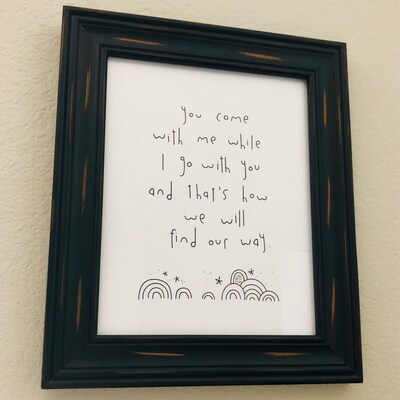 you come
with me while
I go with you
and that's how
we will
find our way.